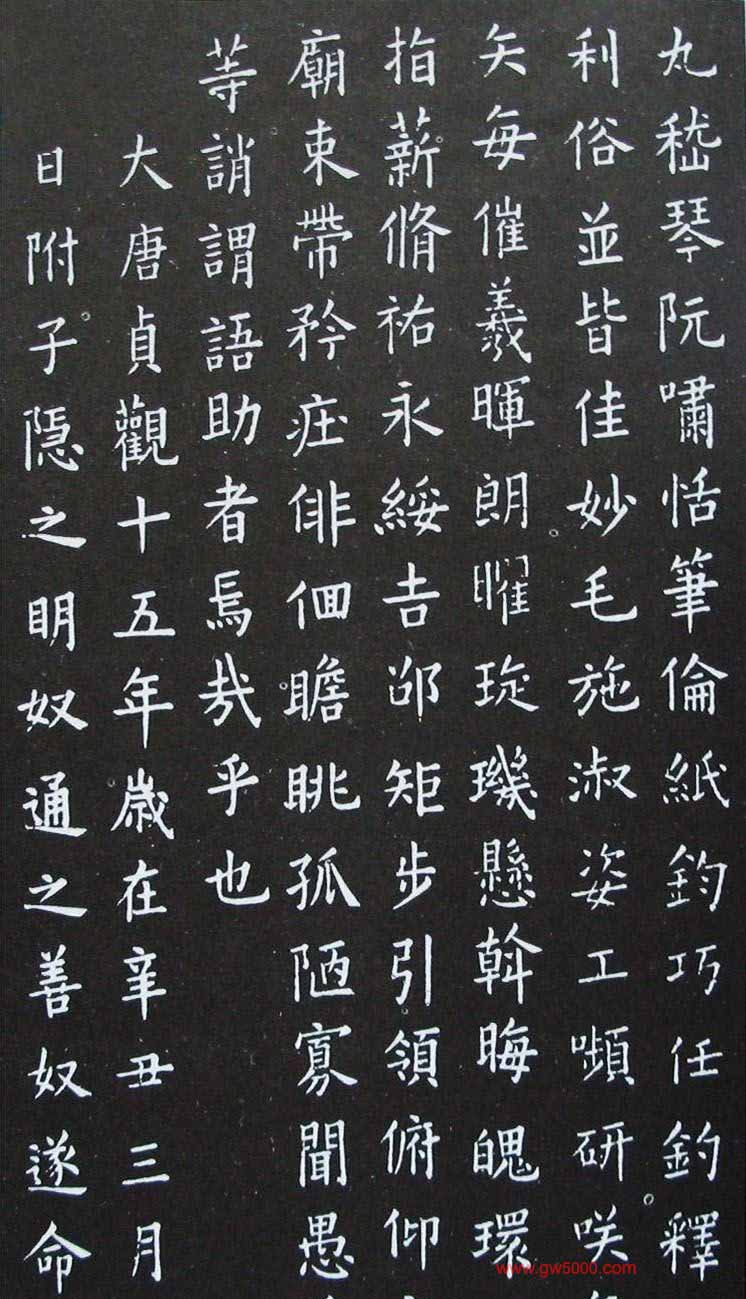 丸嵇琴阮嘯恬筆倫紙鈞巧任釣釋
利俗並皆佳妙毛施淑姿工嚬研咲
矢每催羲暉朗曜琁璣懸斡晦魄環
指薪脩祐永綏吉邵矩步引領俯仰
廟束帶矜庄俳佪瞻眺孤陋寡聞愚
等誚謂語助者焉哉乎也
大唐貞觀十五年歲在辛丑三月
日附子隱之明奴通之善奴遂命
www.gw5000.com